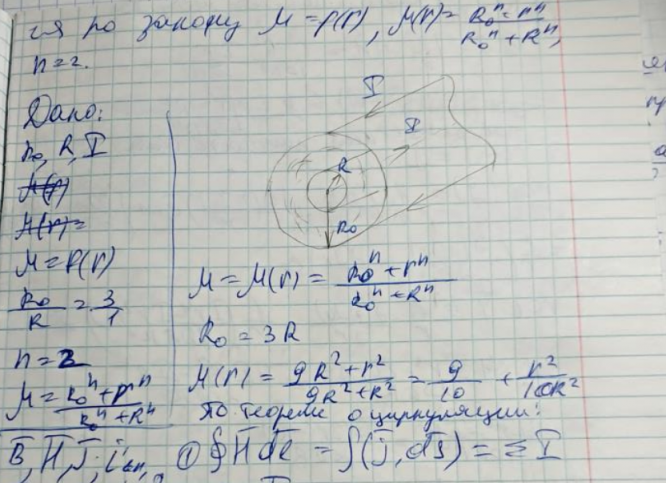 ся по закону μ = f(r), μ(r) = (R₀ⁿ + rⁿ)/(R₀ⁿ + Rⁿ),
n = 2.
Дано:
R₀, R, I
μ(r)
μ(r) =
μ = f(r)
R₀/R = 3/1
n = 2
μ = (R₀ⁿ + rⁿ)/(R₀ⁿ + Rⁿ)
I
I
R
R₀
μ = μ(r) = (R₀ⁿ + rⁿ)/(R₀ⁿ + Rⁿ)
R₀ = 3R
μ(r) = (9R² + r²)/(9R² + R²) = 9/10 + r²/10R²
По теореме о циркуляции:
B̄, H̄, J̄,
① ∮H̄dℓ = ∫(j̄, ds̄) = Σ I